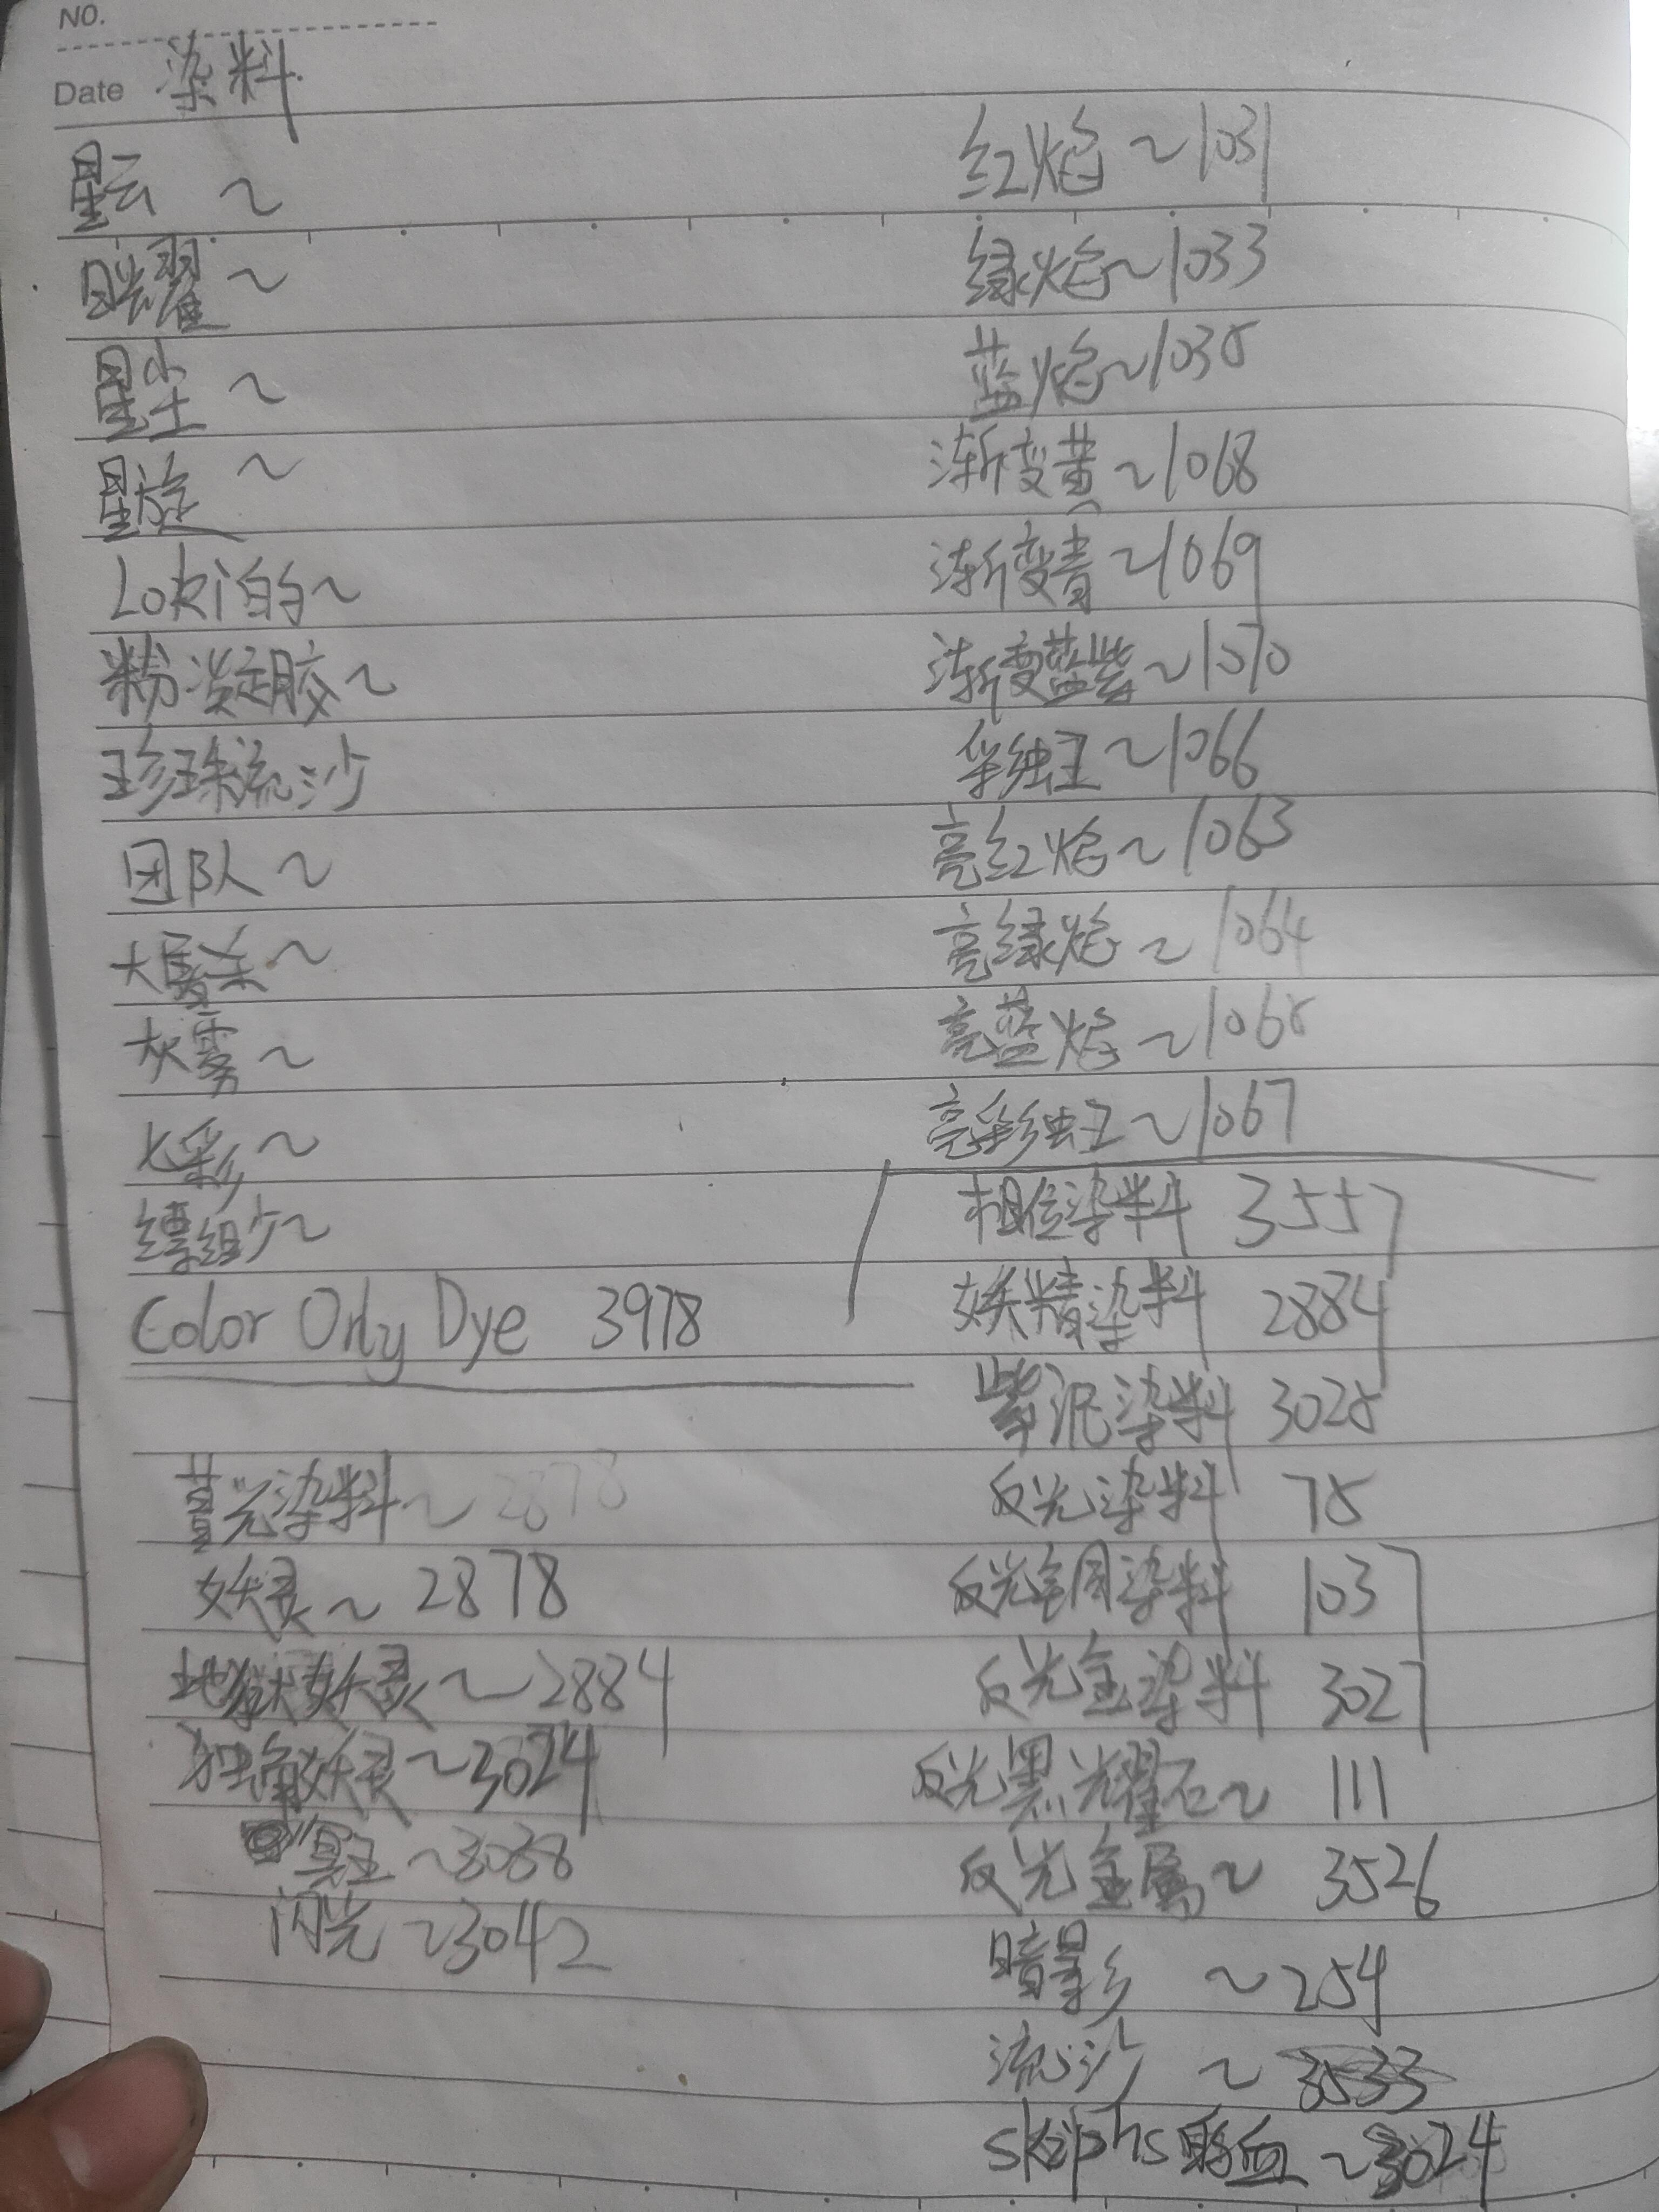 NO.
Date 染料
星云 ~
日耀 ~
星尘 ~
星旋 ~
Loki的~
粉凝胶~
珍珠流沙
团队~
大屠杀~
灰雾~
七彩~
缥缈~
Color Only Dye 3978
染料~ 2878
妖灵~ 2878
地狱妖灵~2884
妖灵~3024
冥王~3038
闪光~3042
红焰~1031
绿焰~1033
蓝焰~1035
渐变黄~1068
渐变青~1069
渐变蓝紫~1070
彩虹~1066
亮红焰~1063
亮绿焰~1064
亮蓝焰~1065
亮彩虹~1067
相位染料 3557
妖精染料 2884
紫泥染料 3025
反光染料 75
反光铜染料 1037
反光金染料 3027
反光黑光耀石~ 111
反光金属~ 3526
暗影 ~254
流沙 ~3533
血~3024